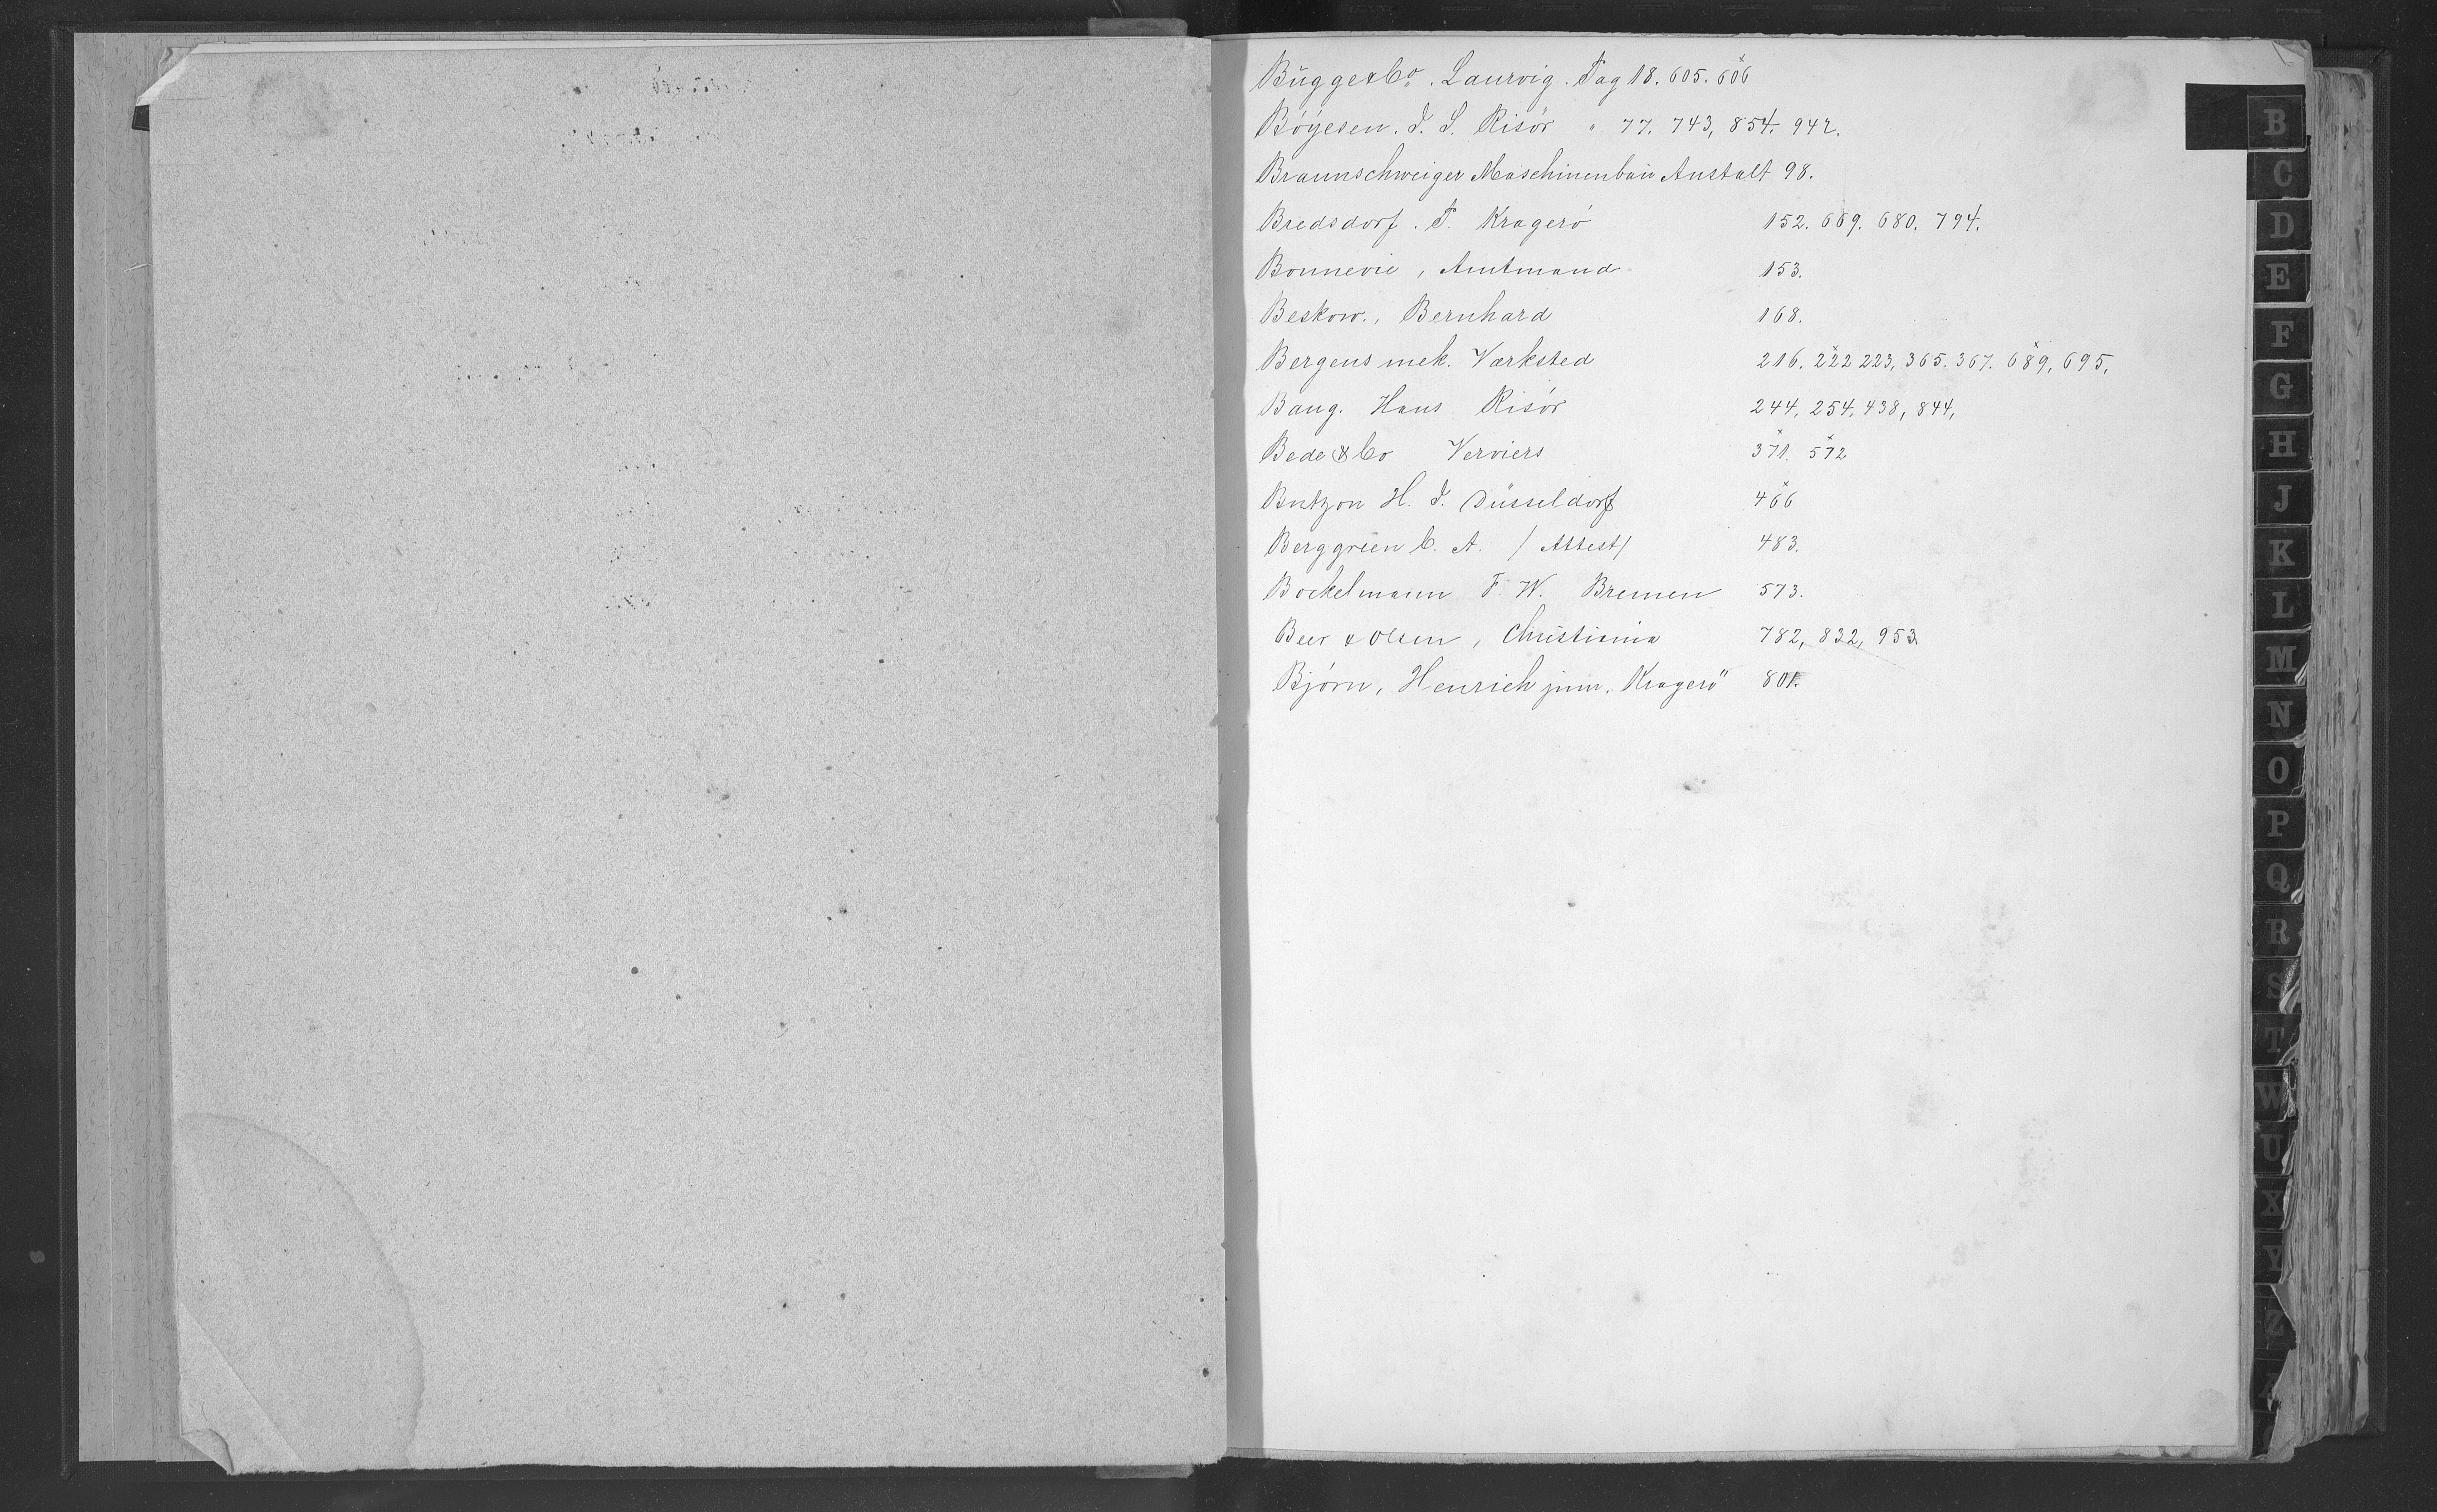 Bugge & Co. Laurvig. Pag 18. 605. 606
Böyesen. J. S. Risör " 77. 743, 854. 942.
Braunschweiger Maschinenbau Anstalt 98.
Bredsdorf. T. Kragerö 152. 669. 680. 794.
Bonnevie, Amtmand 153.
Beskow., Bernhard 168.
Bergens mek. Værksted 216. 222 223, 365. 367. 689, 695,
Bang. Hans Risör 244, 254, 438, 844,
Bede & Co Verviers 371. 572
Butzon H. J. Düsseldorf 466
Berggreen C. A. / Attest / 483.
Bockelmann F. W. Bremen 573.
Beer & Olsen, Christiania 782, 832, 953
Björn, Henrich jun, Kragerö 801.
B
C
D
E
F
G
H
J
K
L
M
N
O
P
Q
R
S
T
W
U
X
Y
Z